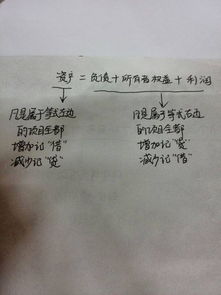 资产 = 负债 + 所有者权益 + 利润
凡是属于等式左边
的项目全部
增加记"借"
减少记"贷"
凡是属于等式右边
的项目全部
增加记"贷"
减少记"借"